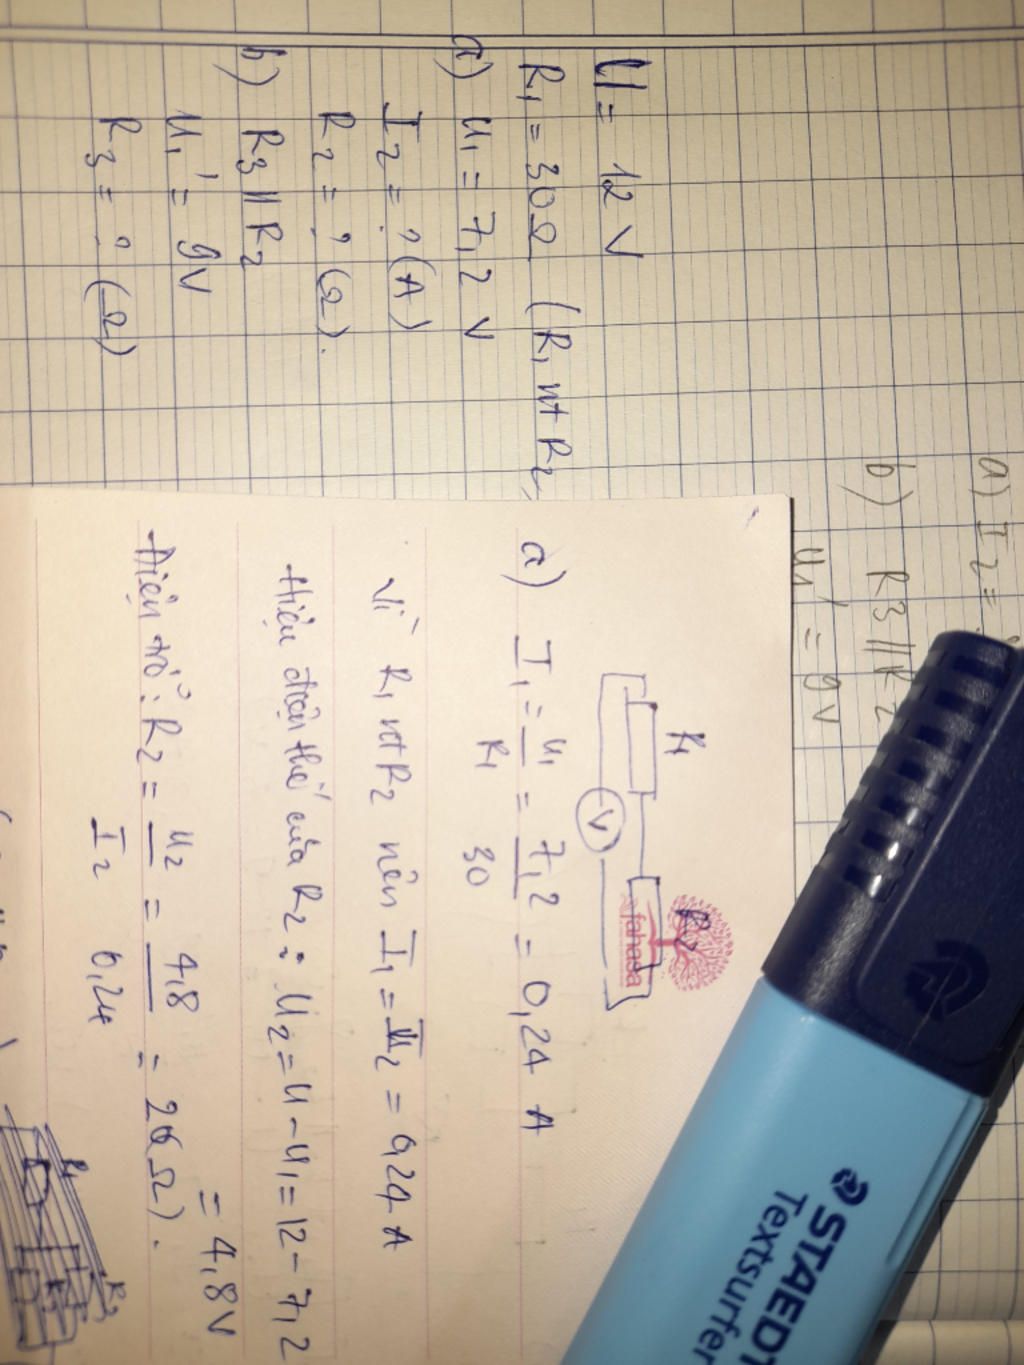 U = 12 V
R1 = 30Ω (R1 nt R2
a) U1 = 7,2 V
I2 = ? (A)
R2 = ? (Ω).
b) R3 // R2
U1' = 9V
R3 = ? (Ω)
a) I2 =
b) R3 // R2
U1' = 9V
R1
R2
V
fahasa
a) I1 = U1/R1 = 7,2/30 = 0,24 A
Vì R1 nt R2 nên I1 = I2 = 0,24 A
Hiệu điện thế của R2 : U2 = U - U1 = 12 - 7,2
= 4,8V
Điện trở: R2 = U2/I2 = 4,8/0,24 = 20(Ω).
R1
R3
STAEDT
Textsurfer